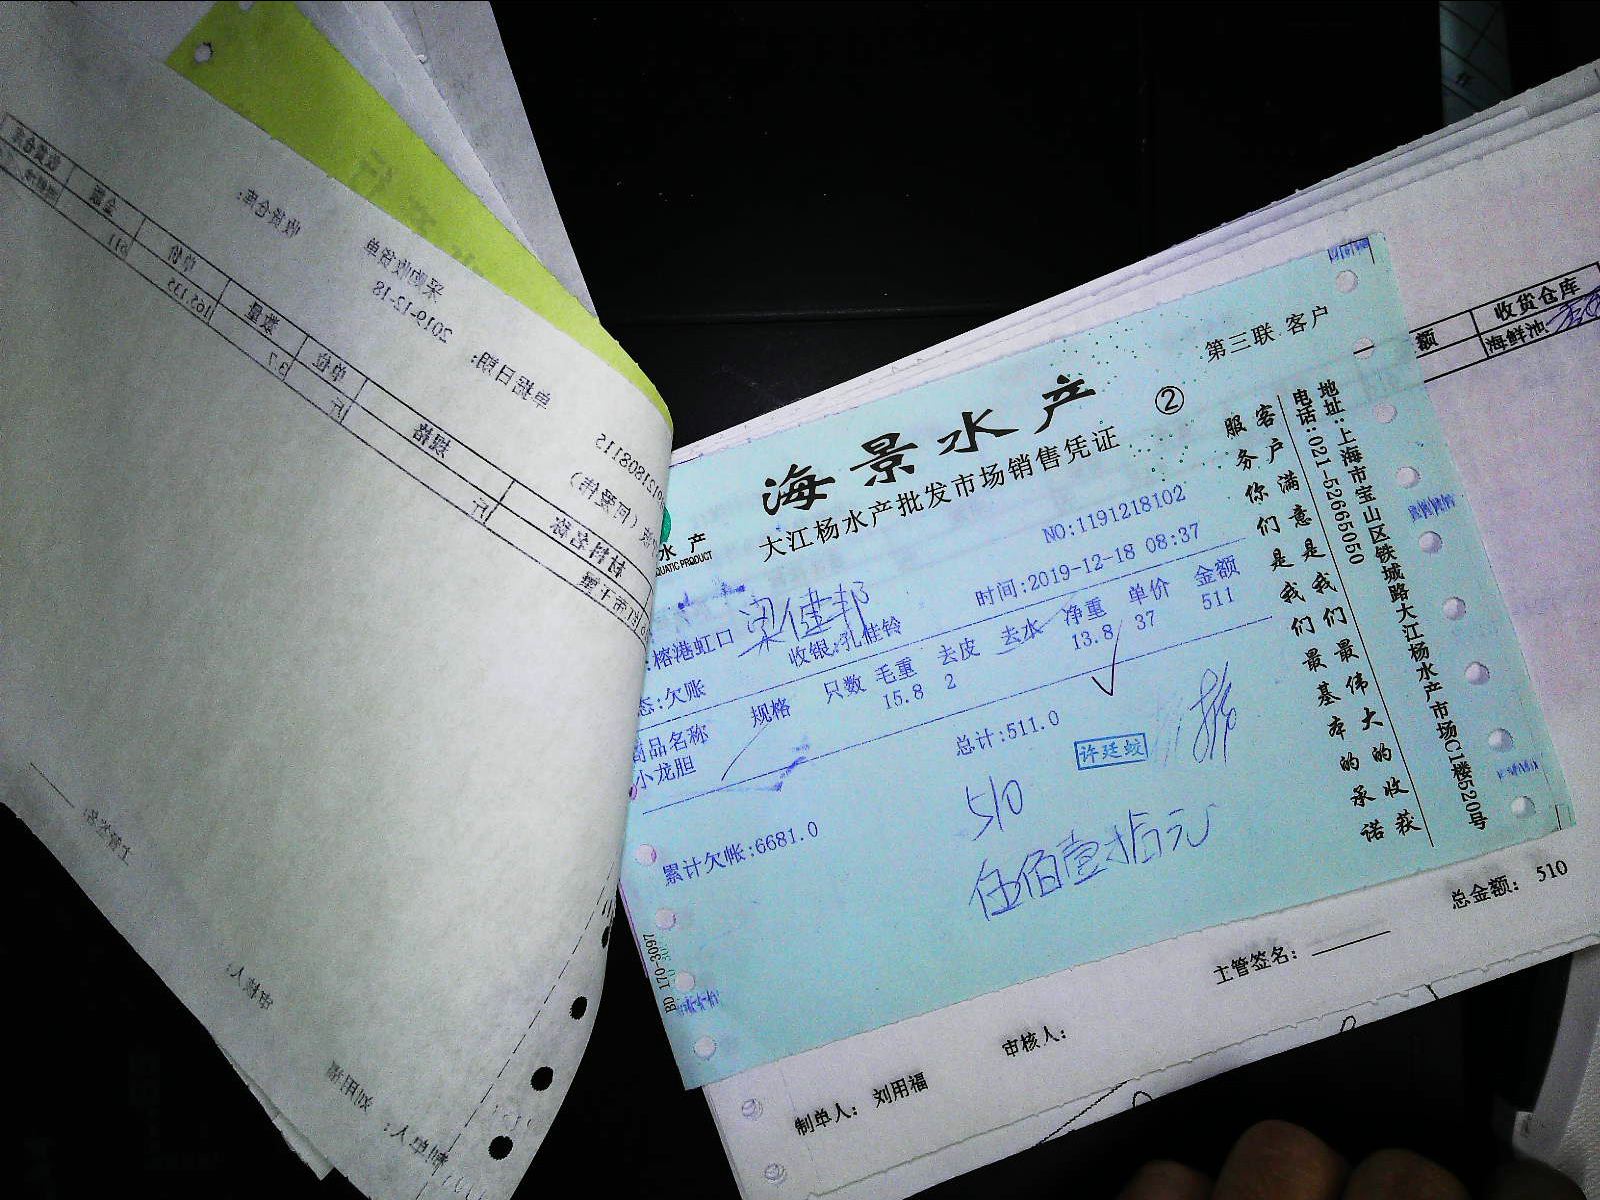 第三联 客户
海景水产 ②
大江杨水产批发市场销售凭证
水产
QUATIC PRODUCT
NO:1191218102
榕港虹口 梁健邦
时间:2019-12-18 08:37
态:欠账 收银:孔佳铃
商品名称 规格 只数 毛重 去皮 去水 净重 单价 金额
小龙胆 15.8 2 13.8 37 511
总计:511.0
许廷蛟
累计欠帐:6681.0
510
伍佰壹拾元
客户满意是我们最伟大的收获
服务你们是我们最基本的承诺
地址:上海市宝山区铁城路大江杨水产市场C1楼520号
电话:021-52665050
BD 170-3097
额 收货仓库
海鲜池
总金额: 510
主管签名:
审核人:
制单人: 刘用福
收货仓库:
采购收货单
单据日期: 2019-12-18
收货仓库 金额 单价 数量 单位 规格 材料名称